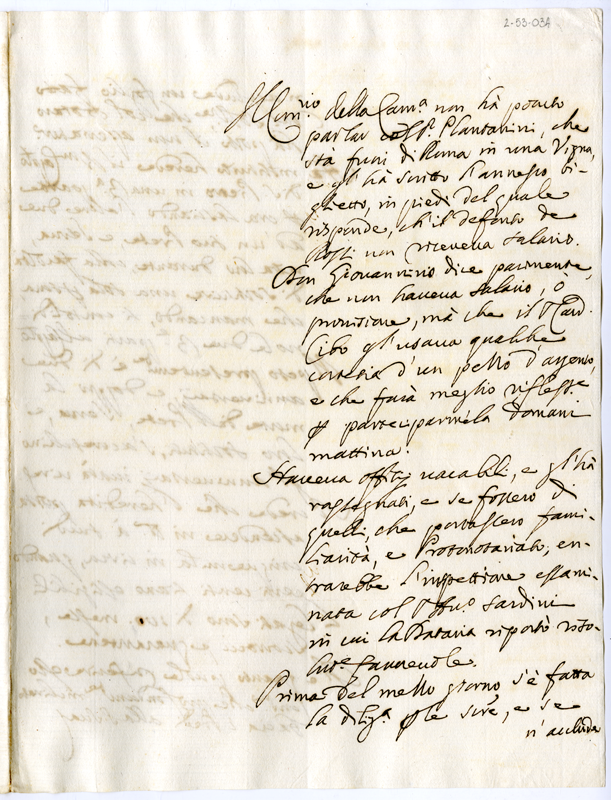 2-53-03A
Il Com.rio della Cam.a non hà potuto
parlar coll'. Plantanini, che
stà fuori di Roma in una Vigna,
e gl'hà scritto l'annesso bi-
glietto, in piedi del quale
risponde, ch'il defonto de
Rossi non riceveva salario.
Don Giovannino dice parimente,
che non haveva salario, ò
provisione, mà che il Card.
Cibo gl'usava qualche
cortesia d'un pezzo d'argento,
e che farà meglio rifless.e
p parteciparmela domani
mattina.
Haveva offitij vacabili, e gl'hà
rassegnati, e se fossero di
quelli, che portassero fami-
liarità, e Protonotariato, en-
trarebbe l'inspettione essami-
nata col Sardini
in cui la Dataria riportò riso-
lut.e favorevole.
Prima del mezzo giorno s'è fatta
la dilig.a p le scr.e, e se
n'acclude